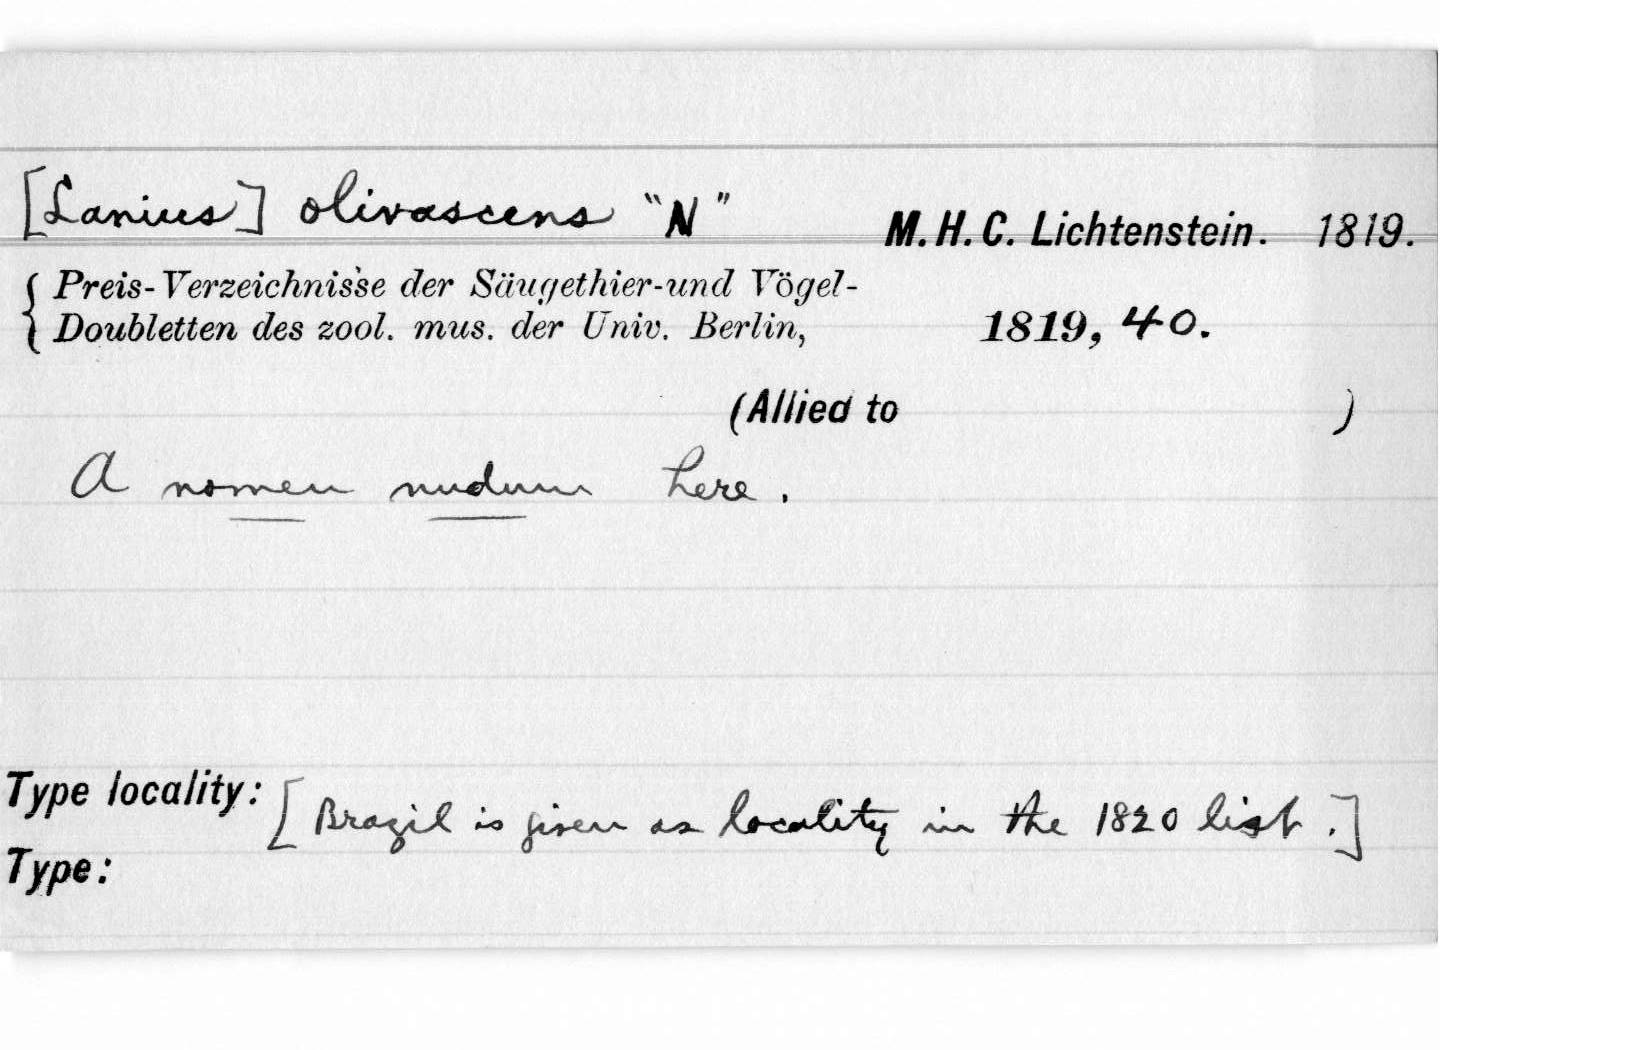 [Lanius] olivascens "N" M. H. C. Lichtenstein. 1819.
Preis-Verzeichnisse der Säugethier-und Vögel-
Doubletten des zool. mus. der Univ. Berlin, 1819, 40.
(Allied to )
A nomen nudum here.
Type locality: [Brazil is given as locality in the 1820 list.]
Type: